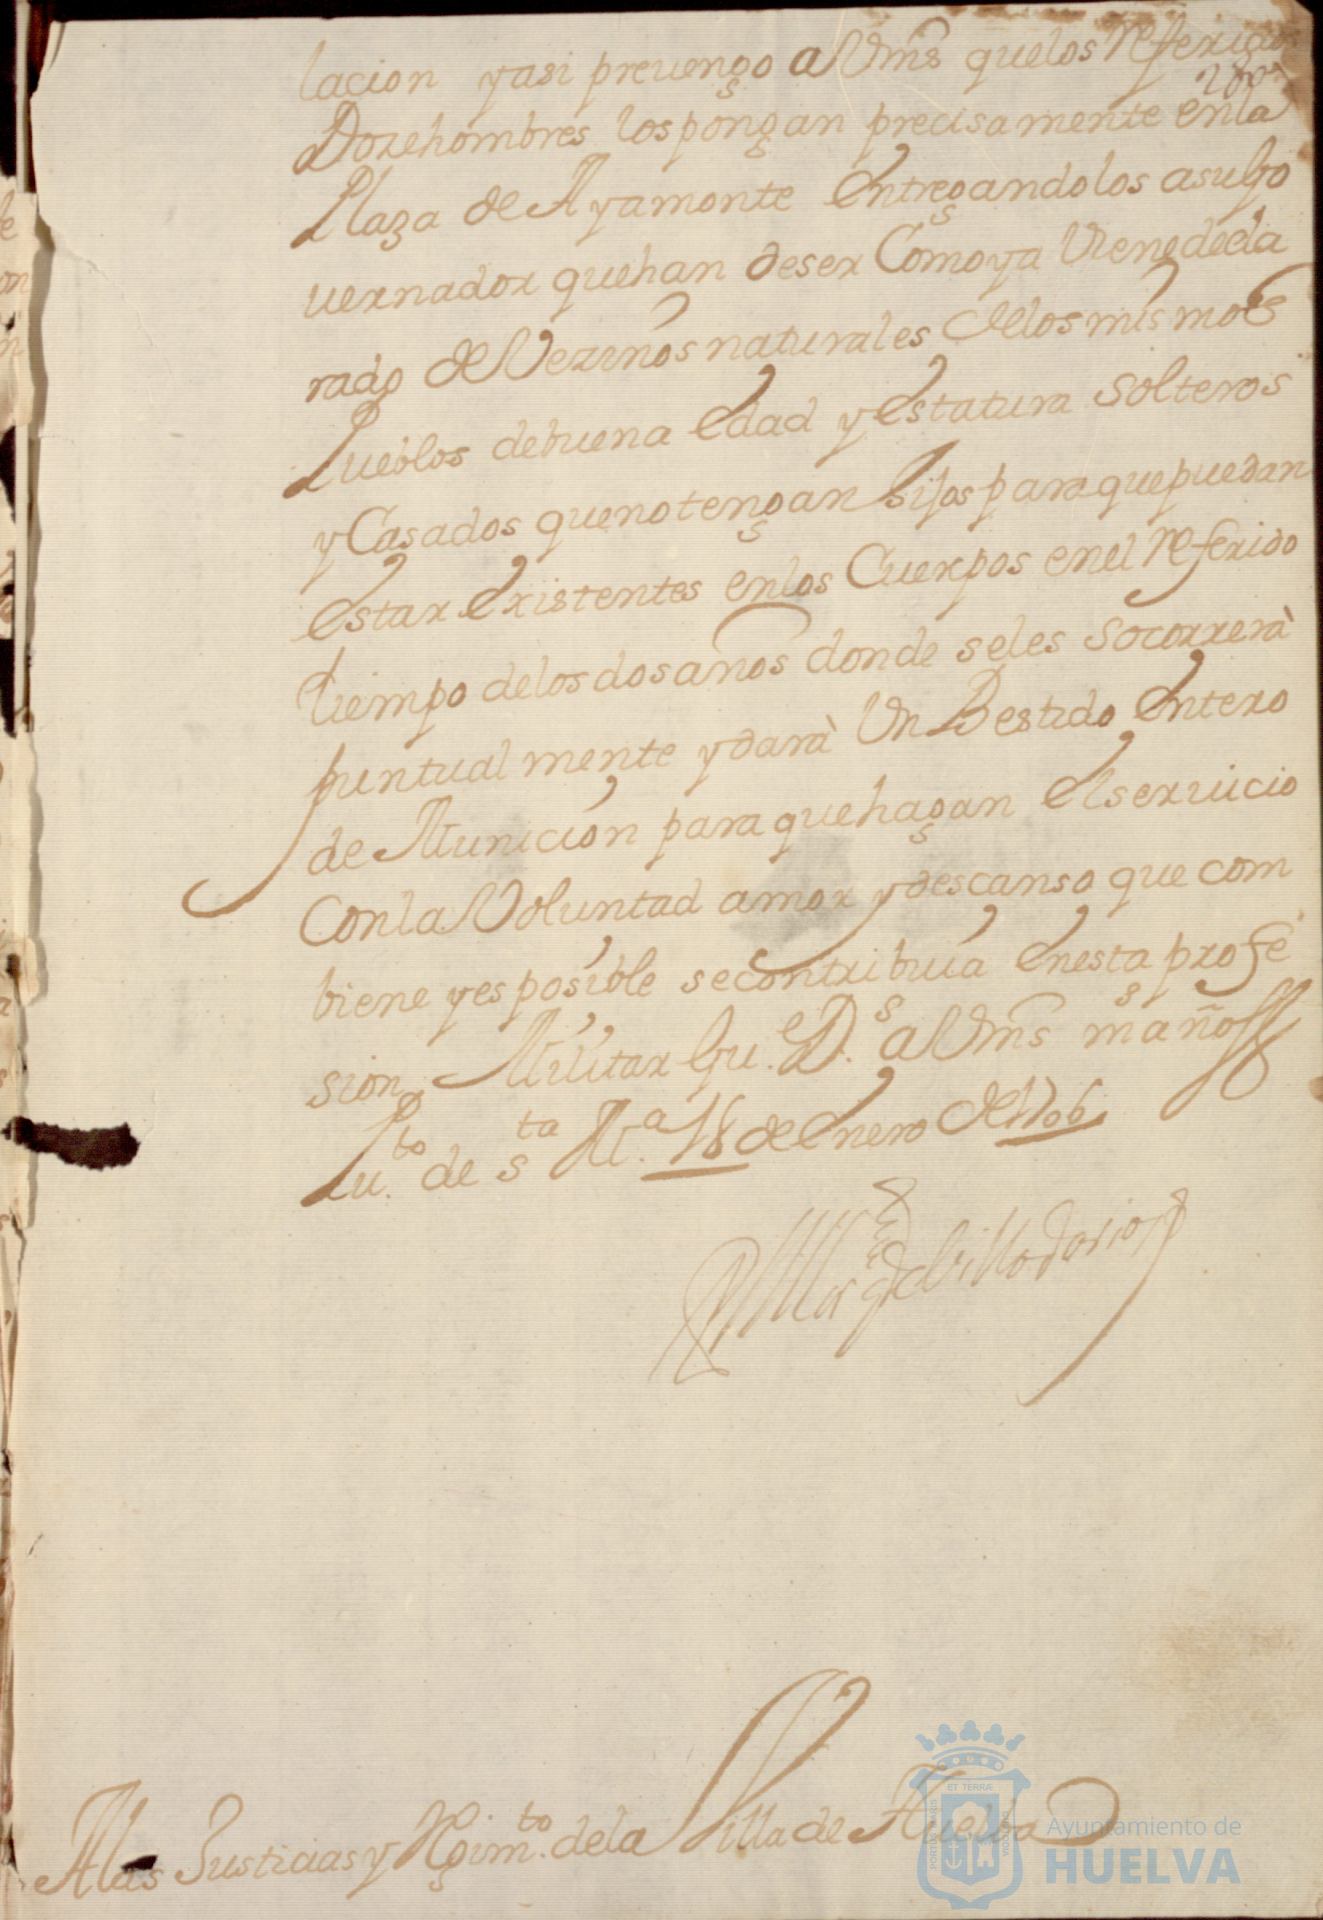 lacion y asi preuengo a Vms que los referidos
Doze hombres los pongan precisamente en la
Plaza de Ayamonte entregandolos a su Go
uernador que han de ser Como ya Viene decla
rado de Vezinos naturales de los mismos
Pueblos de buena edad y estatura solteros
y Casados que no tengan hijos para que puedan
estar existentes en los Cuerpos en el referido
tiempo de los dos años donde se les socorrerà
puntual mente y darà Un Bestido entero
de Municion para que hagan el seruicio
Con la Voluntad amor y descanso que com
biene y es posible se contribuia en esta profe
sion Militar Gu.e D.s a Vms m.s años
Pu.to de S.ta M.a 18 de enero de 1706
El Marq de Villadarias
A las Justicias y Rgim.to de la Villa de Huelba
ET TERRÆ
PORTUS MARIS
CUSTODIA
Ayuntamiento de
HUELVA